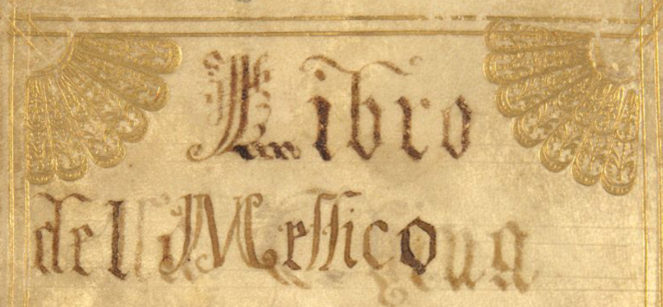 Libro
del Messico